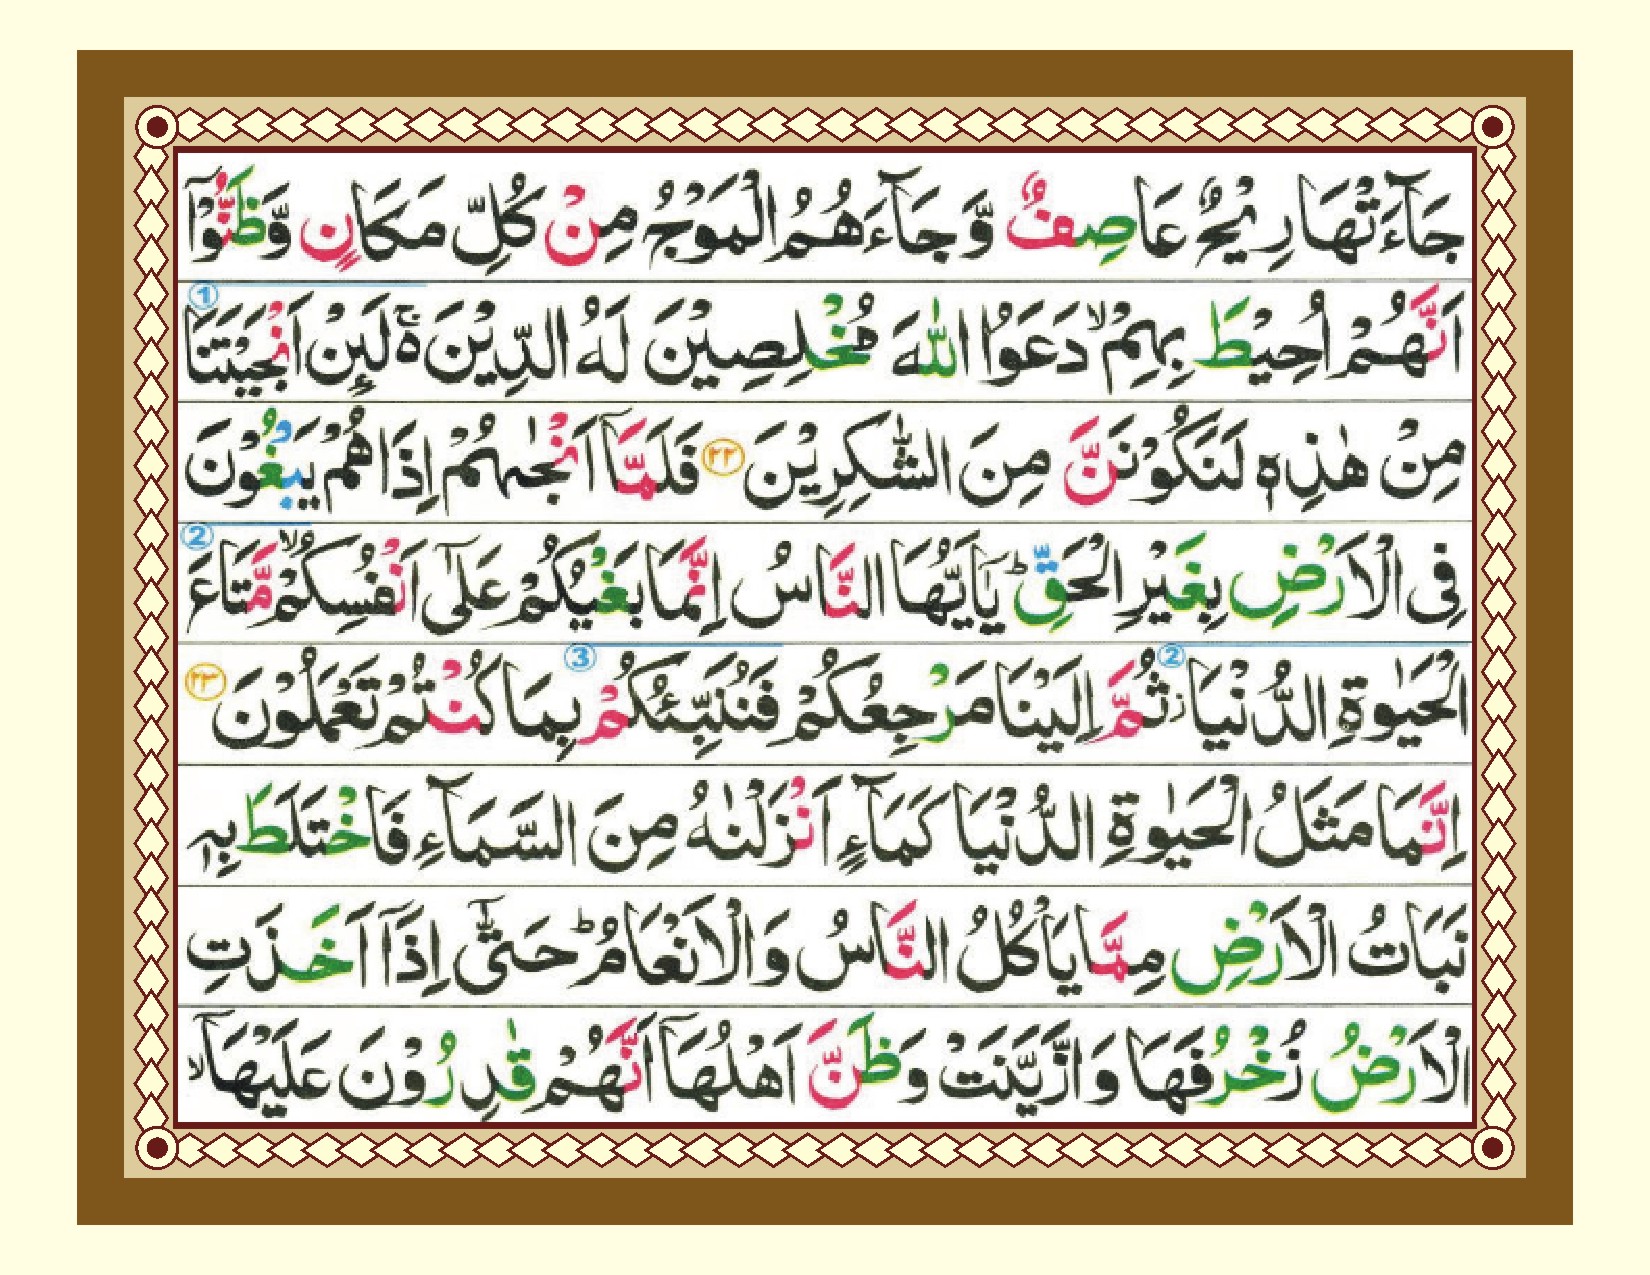 جَآءَتْهَا رِيْحٌ عَاصِفٌ وَّ جَآءَهُمُ الْمَوْجُ مِنْ كُلِّ مَكَانٍ وَّظَنُّوْۤا
اَنَّهُمْ اُحِيْطَ بِهِمْ ۙ دَعَوُا اللّٰهَ مُخْلِصِيْنَ لَهُ الدِّيْنَ ۚ۬ لَئِنْ اَنْجَيْتَنَا ①
مِنْ هٰذِهٖ لَنَكُوْنَنَّ مِنَ الشّٰكِرِيْنَ ۲۲ فَلَمَّاۤ اَنْجٰىهُمْ اِذَا هُمْ يَبْغُوْنَ
فِى الْاَرْضِ بِغَيْرِ الْحَقِّ ؕ يٰۤاَيُّهَا النَّاسُ اِنَّمَا بَغْيُكُمْ عَلٰٓى اَنْفُسِكُمْ ۙ مَّتَاعَ ②
الْحَيٰوةِ الدُّنْيَا ② ۫ ثُمَّ اِلَيْنَا مَرْجِعُكُمْ فَنُنَبِّئُكُمْ ③ بِمَا كُنْتُمْ تَعْمَلُوْنَ ۲۳
اِنَّمَا مَثَلُ الْحَيٰوةِ الدُّنْيَا كَمَآءٍ اَنْزَلْنٰهُ مِنَ السَّمَآءِ فَاخْتَلَطَ بِهٖ
نَبَاتُ الْاَرْضِ مِمَّا يَاْكُلُ النَّاسُ وَالْاَنْعَامُ ؕ حَتّٰۤى اِذَاۤ اَخَذَتِ
الْاَرْضُ زُخْرُفَهَا وَ ازَّيَّنَتْ وَظَنَّ اَهْلُهَاۤ اَنَّهُمْ قٰدِرُوْنَ عَلَيْهَاۤ ۙ